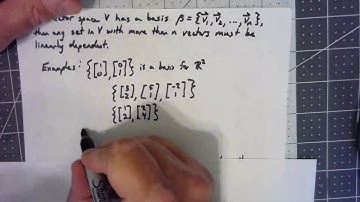 vector space V has a basis β = {v⃗₁, v⃗₂, ..., v⃗ₙ},
than any set in V with more than n vectors must be
linearly dependent.
Examples: {[1 0], [0 1]} is a basis for ℝ²
{[1 2], [ ], [-2 1]}
{[1 2], [ ]}
Sharpie